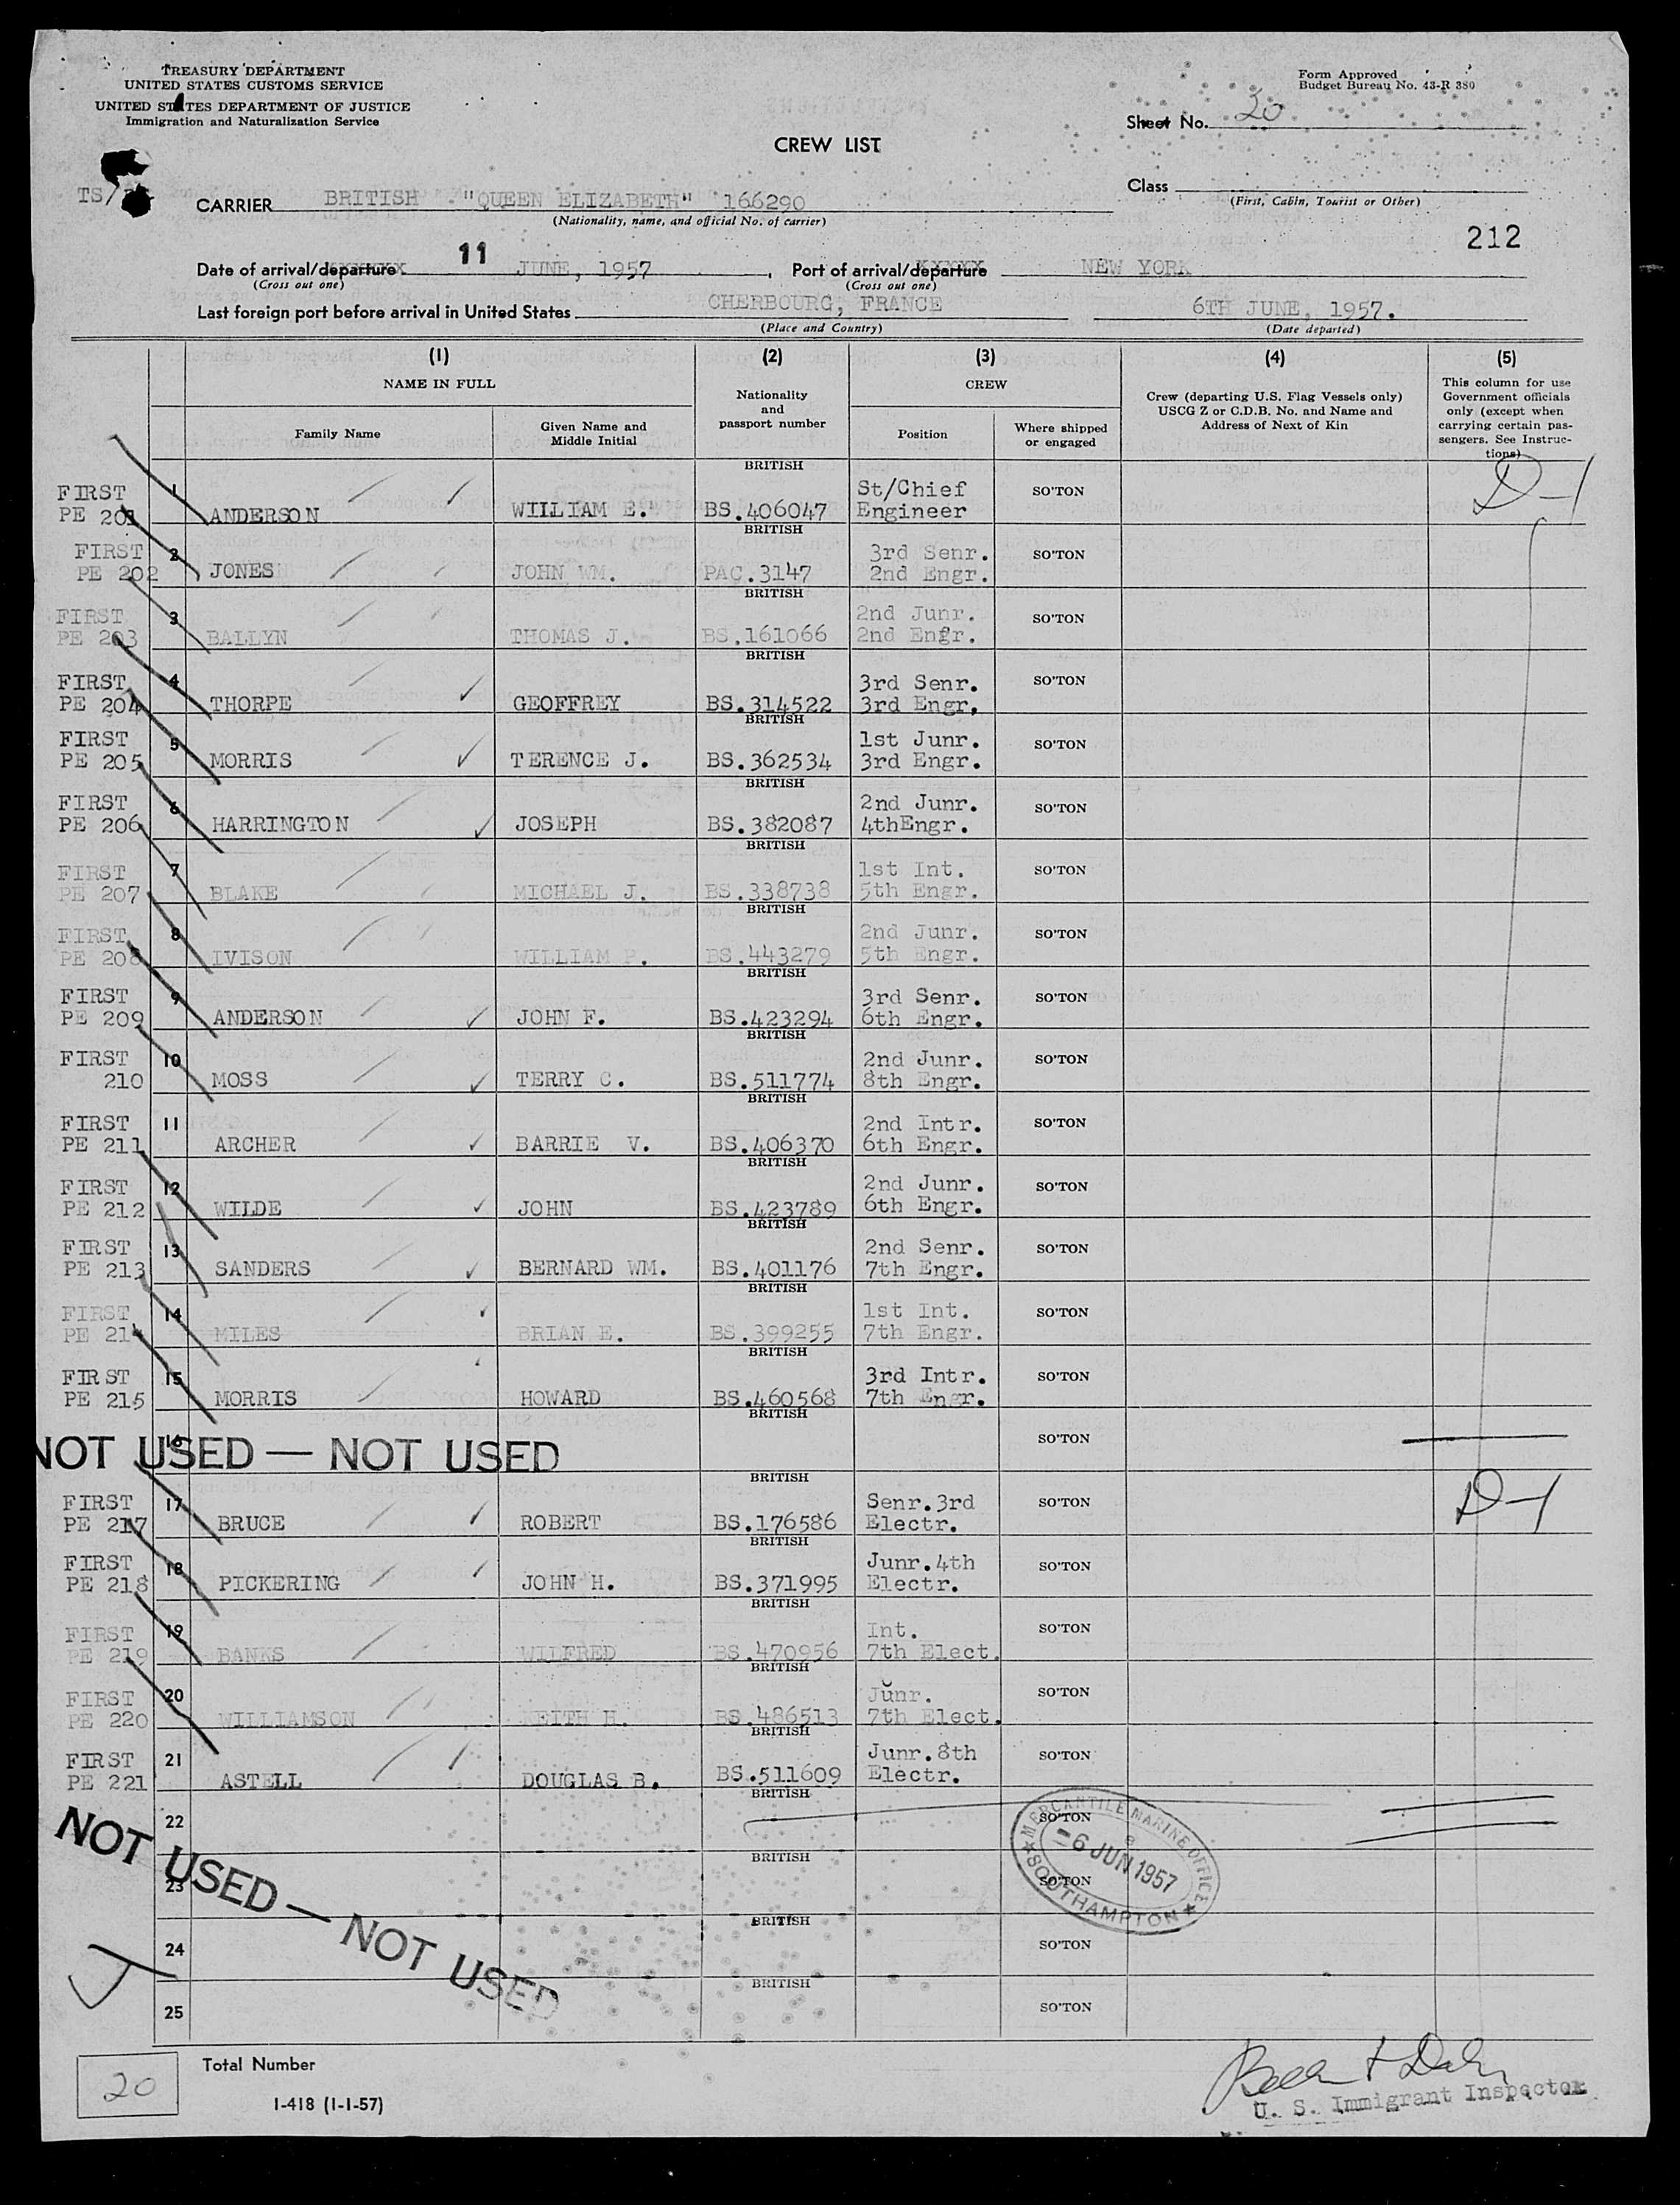 TREASURY DEPARTMENT
UNITED STATES CUSTOMS SERVICE
UNITED STATES DEPARTMENT OF JUSTICE
Immigration and Naturalization Service
Form Approved
Budget Bureau No. 43-R 380
Sheet No. 20
CREW LIST
Class
(First, Cabin, Tourist or Other)
TS/
CARRIER BRITISH "QUEEN ELIZABETH" 166290
(Nationality, name, and official No. of carrier)
212
Date of arrival/departure 11 JUNE, 1957, Port of arrival/departure NEW YORK
(Cross out one) (Cross out one)
Last foreign port before arrival in United States CHERBOURG, FRANCE 6TH JUNE, 1957.
(Place and Country) (Date departed)
(1) (2) (3) (4) (5)
NAME IN FULL Nationality and passport number CREW Crew (departing U.S. Flag Vessels only) USCG Z or C.D.B. No. and Name and Address of Next of Kin This column for use Government officials only (except when carrying certain passengers. See Instructions)
Family Name Given Name and Middle Initial Position Where shipped or engaged
BRITISH
FIRST PE 201 1 ANDERSON WIILIAM E. BS.406047 St/Chief Engineer SO'TON D-1
BRITISH
FIRST PE 202 2 JONES JOHN WM. PAC.3147 3rd Senr. 2nd Engr. SO'TON
BRITISH
FIRST PE 203 3 BALLYN THOMAS J. BS.161066 2nd Junr. 2nd Engr. SO'TON
BRITISH
FIRST PE 204 4 THORPE GEOFFREY BS.314522 3rd Senr. 3rd Engr. SO'TON
BRITISH
FIRST PE 205 5 MORRIS TERENCE J. BS.362534 1st Junr. 3rd Engr. SO'TON
BRITISH
FIRST PE 206 6 HARRINGTON JOSEPH BS.382087 2nd Junr. 4thEngr. SO'TON
BRITISH
FIRST PE 207 7 BLAKE MICHAEL J. BS.338738 1st Int. 5th Engr. SO'TON
BRITISH
FIRST PE 208 8 IVISON WILLIAM P. BS.443279 2nd Junr. 5th Engr. SO'TON
BRITISH
FIRST PE 209 9 ANDERSON JOHN F. BS.423294 3rd Senr. 6th Engr. SO'TON
BRITISH
FIRST 210 10 MOSS TERRY C. BS.511774 2nd Junr. 8th Engr. SO'TON
BRITISH
FIRST PE 211 11 ARCHER BARRIE V. BS.406370 2nd Intr. 6th Engr. SO'TON
BRITISH
FIRST PE 212 12 WILDE JOHN BS.423789 2nd Junr. 6th Engr. SO'TON
BRITISH
FIRST PE 213 13 SANDERS BERNARD WM. BS.401176 2nd Senr. 7th Engr. SO'TON
BRITISH
FIRST PE 214 14 MILES BRIAN E. BS.399255 1st Int. 7th Engr. SO'TON
BRITISH
FIRST PE 215 15 MORRIS HOWARD BS.460568 3rd Intr. 7th Engr. SO'TON
BRITISH
16 NOT USED — NOT USED SO'TON
BRITISH
FIRST PE 217 17 BRUCE ROBERT BS.176586 Senr.3rd Electr. SO'TON D-1
BRITISH
FIRST PE 218 18 PICKERING JOHN H. BS.371995 Junr.4th Electr. SO'TON
BRITISH
FIRST PE 219 19 BANKS WILFRED BS.470956 Int. 7th Elect. SO'TON
BRITISH
FIRST PE 220 20 WILLIAMSON KEITH H. BS.486513 Junr. 7th Elect. SO'TON
BRITISH
FIRST PE 221 21 ASTELL DOUGLAS B. BS.511609 Junr.8th Electr. SO'TON
BRITISH
22 SO'TON
BRITISH
23 SO'TON
BRITISH
24 SO'TON
BRITISH
25 SO'TON
NOT USED — NOT USED
MERCANTILE MARINE OFFICE
6 JUN 1957
SOUTHAMPTON
20 Total Number
I-418 (1-1-57)
U. S. Immigrant Inspector